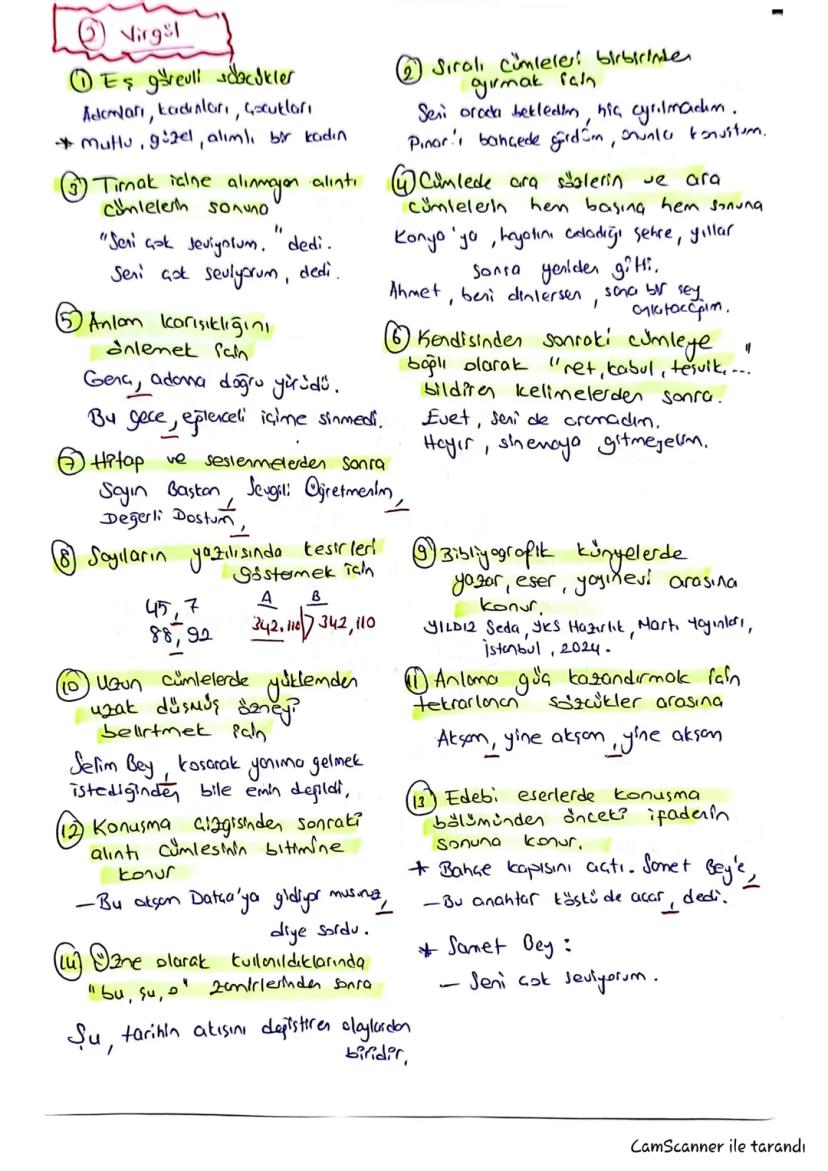 ② Virgül
① Eş görevli sözcükler
Adamları, kadınları, çocukları
* mutlu, güzel, alımlı bir kadın
② Sıralı cümleleri birbirinden
ayırmak için
Seni orada bekledim, hiç ayrılmadım.
Pınar'ı bahçede gördüm, onunla konuştum.
③ Tırnak içine alınmayan alıntı
cümlelerin sonuna
"Seni çok seviyorum." dedi.
Seni çok seviyorum, dedi.
④ Cümlede ara sözlerin ve ara
cümlelerin hem başına hem sonuna
Konya'ya, hayatını adadığı şehre, yıllar
sonra yeniden gitti.
Ahmet, beni dinlersen, sana bir şey
anlatacağım.
⑤ Anlam karışıklığını
önlemek için
Genç, adama doğru yürüdü.
Bu gece, eğlenceli içime sinmedi.
⑥ Kendisinden sonraki cümleye
bağlı olarak "ret, kabul, teşvik..."
bildiren kelimelerden sonra.
Evet, seni de aramadım.
Hayır, sinemaya gitmeyelim.
⑦ Hitap ve seslenmelerden sonra
Sayın Başkan, Sevgili Öğretmenim,
Değerli Dostum,
⑧ Sayıların yazılışında kesirleri
göstermek için
45,7
88,92
A B
342.110 > 342,110
⑨ Bibliyografik künyelerde
yazar, eser, yayınevi arasına
konur.
YILDIZ Seda, YKS Hazırlık, Martı Yayınları,
İstanbul, 2024.
⑩ Uzun cümlelerde yüklemden
uzak düşmüş özneyi
belirtmek için
Selim Bey, koşarak yanıma gelmek
istediğinden bile emin değildi.
⑪ Anlama güç kazandırmak için
tekrarlanan sözcükler arasına
Akşam, yine akşam, yine akşam
⑫ Konuşma çizgisinden sonraki
alıntı cümlesinin bitimine
konur
– Bu akşam Datça'ya gidiyor musunuz,
diye sordu.
⑬ Edebi eserlerde konuşma
bölümünden önceki ifadenin
sonuna konur.
* Bahçe kapısını açtı. Samet Bey'e,
– Bu anahtar köşkü de açar, dedi.
* Samet Bey:
– Seni çok seviyorum.
⑭ Özne olarak kullanıldıklarında
"bu, şu, o" zamirlerinden sonra
Şu, tarihin akışını değiştiren olaylardan
biridir.
CamScanner ile tarandı